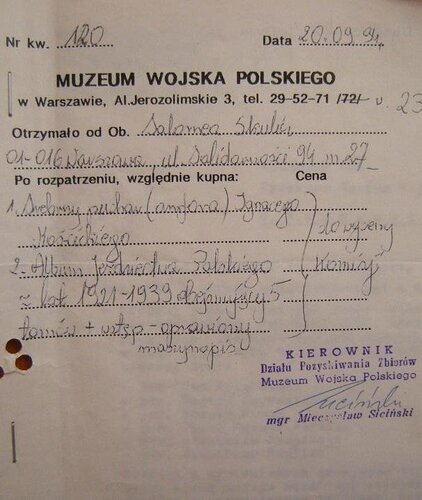 Nr kw. 120 Data 20.09.94.
MUZEUM WOJSKA POLSKIEGO
w Warszawie, Al.Jerozolimskie 3, tel. 29-52-71 /72/ w. 23
Otrzymało od Ob. Salomea
01-016 Warszawa ul. Solidarności 94 m 27
Po rozpatrzeniu, względnie kupna: Cena
1. Srebrny puchar (amfora) Ignacego
Kościckiego do wyceny
2. Album Jeździectwa Polskiego Komisji
z lat 1921-1939 obejmujący 5
tomów + wstęp - oprawiony
maszynopis
KIEROWNIK
Działu Pozyskiwania Zbiorów
Muzeum Wojska Polskiego
mgr Mieczysław Siciński